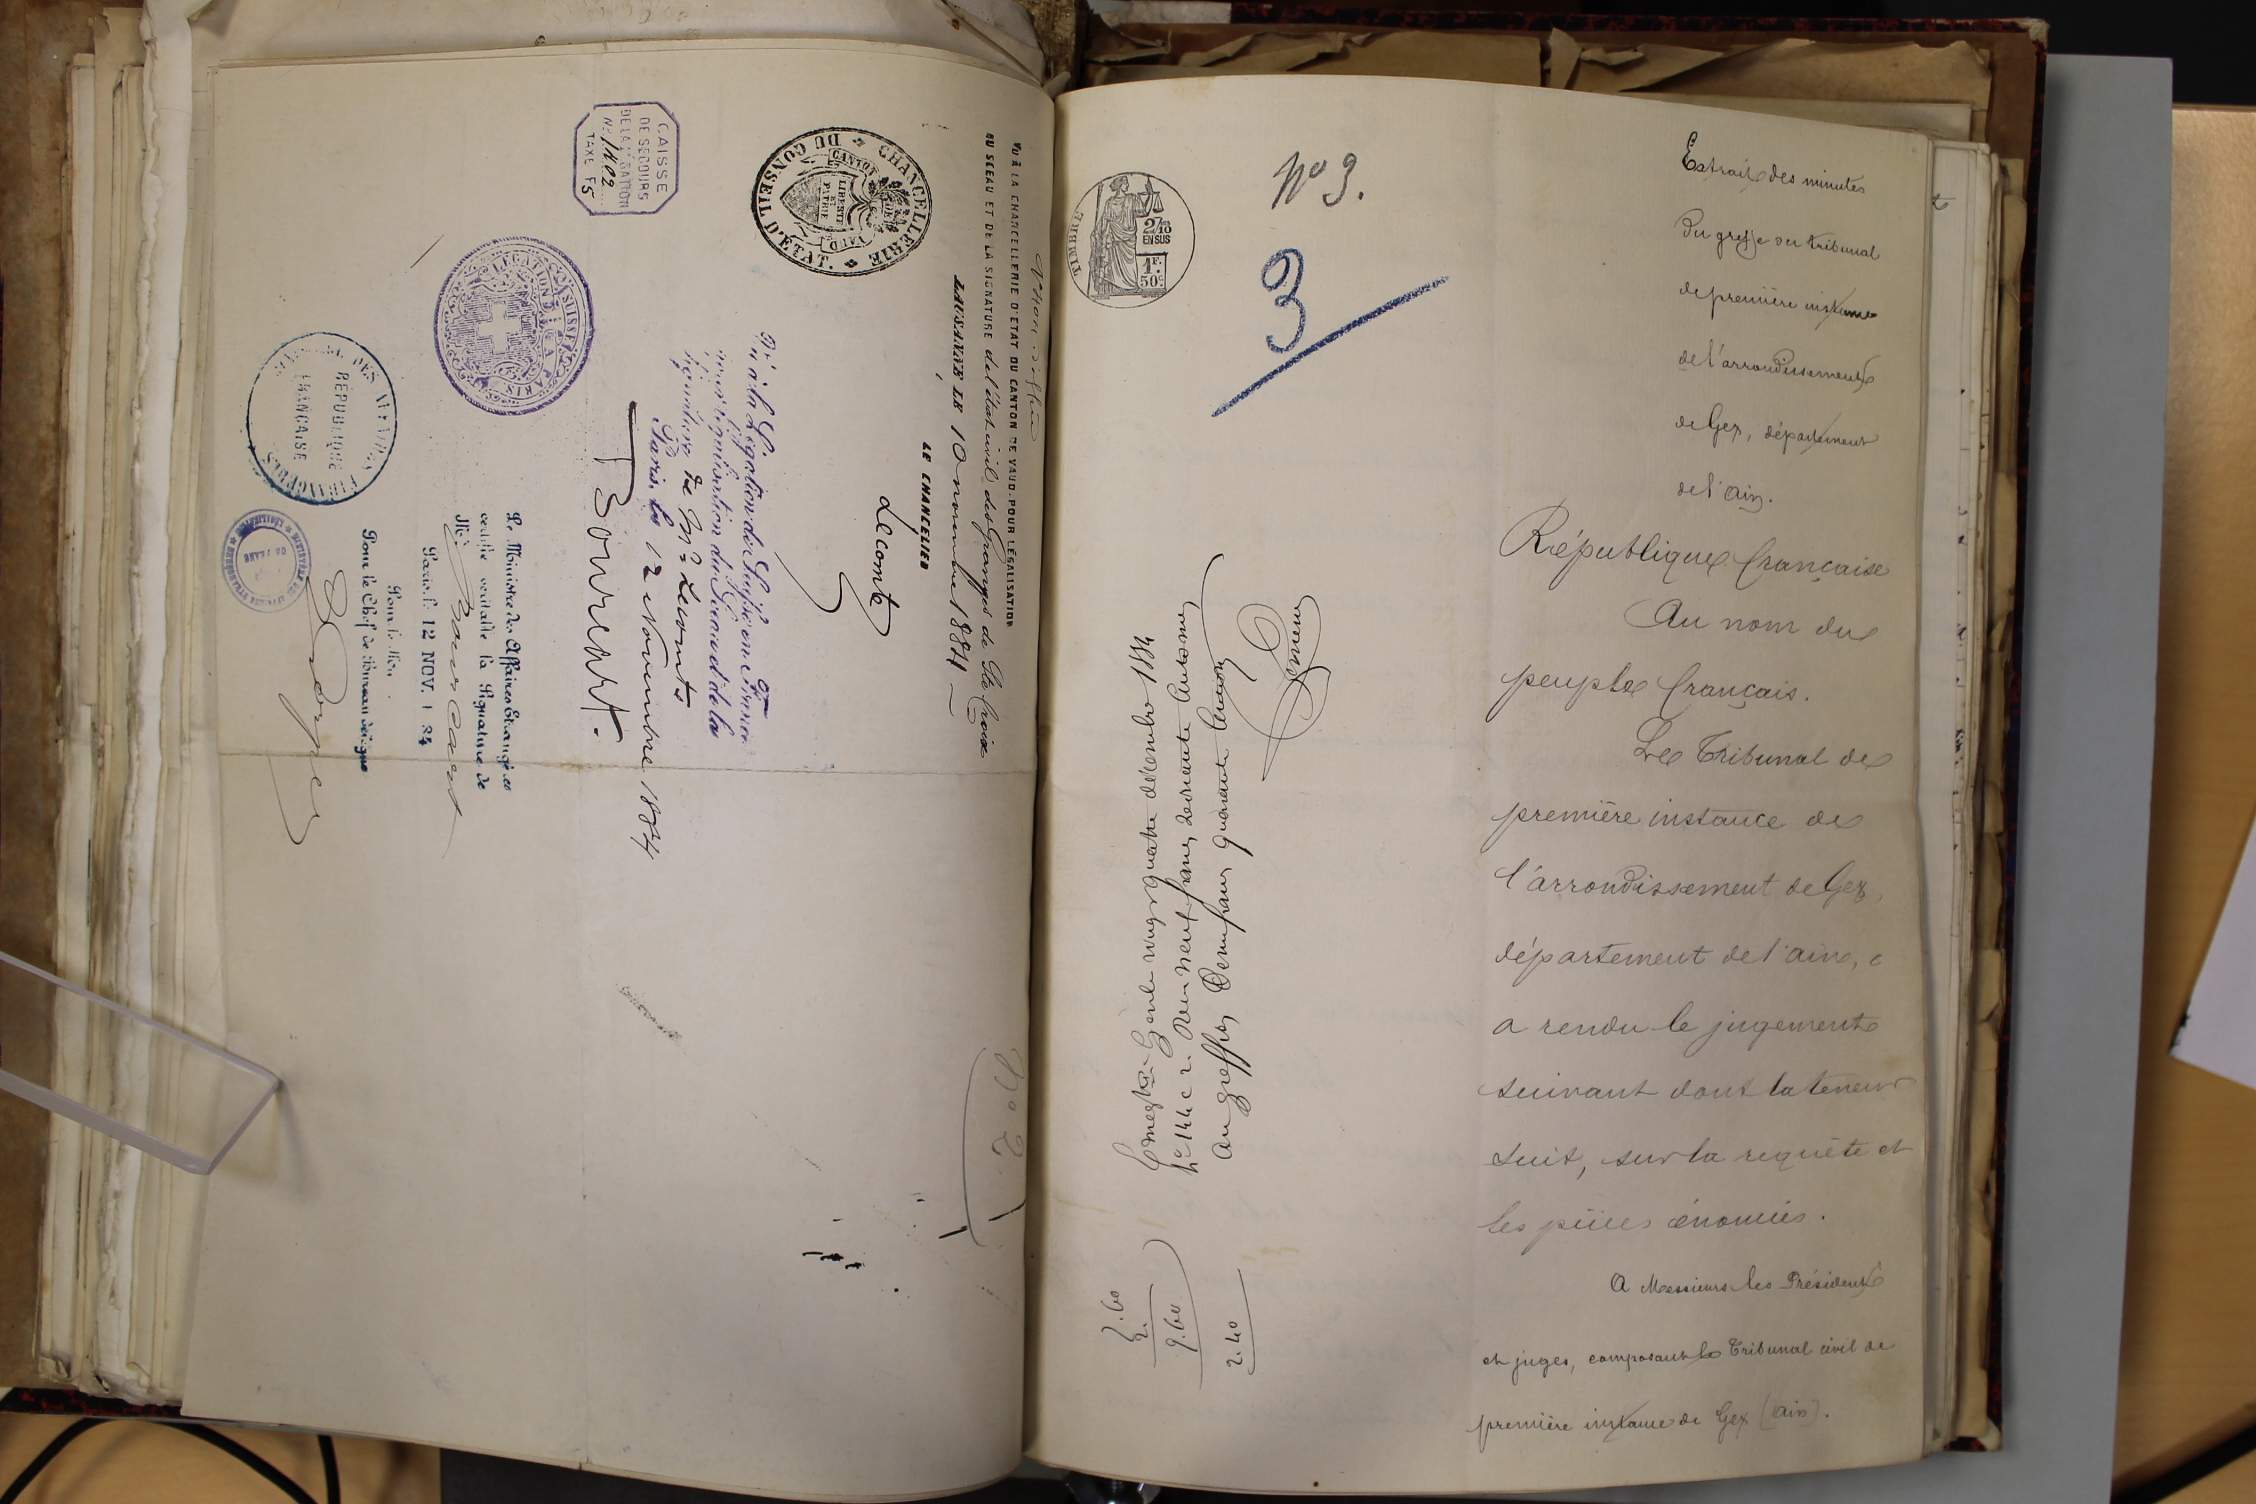 VU À LA CHANCELLERIE D'ÉTAT DU CANTON DE VAUD, POUR LÉGALISATION
DU SCEAU ET DE LA SIGNATURE de l'état civil des Granges de Ste Croix
LAUSANNE LE 10 novembre 1884
LE CHANCELIER
Lecomte
CHANCELLERIE
DU CONSEIL D'ETAT.
CANTON DE VAUD
LIBERTÉ
ET
PATRIE
Vu à la Légation de Suisse en France
pour légalisation du Sceau et de la
signature de Mr Lecomte
Paris, le 12 Novembre 1884
CAISSE
DE SECOURS
DE LA LÉGATION
No 1402
TAXE F 5
LEGATION SUISSE A PARIS
Le Ministre des Affaires Etrangères
certifie véritable la Signature de
Mr
Paris, le 12 NOV. 1884
Pour le Ministre
Pour le Chef de Bureau délégué
RÉPUBLIQUE
FRANÇAISE
No 2
No 3.
3
TIMBRE
2/10
EN SUS
1F.
50c
Extrait des minutes
du greffe du tribunal
de première instance
de l'arrondissement
de Gex, département
de l'ain.
République française
Au nom du
peuple français.
Le Tribunal de
première instance de
l'arrondissement de Gex,
département de l'ain,
a rendu le jugement
suivant dont la teneur
suit, sur la requête et
les pièces énoncées.
A Messieurs les Président
et juges, composant le Tribunal civil de
première instance de Gex (ain).
vingt quatre décembre 1884
neuf francs soixante centimes
au greffier Deux francs quarante centimes
7.60
2.
9.60
2.40